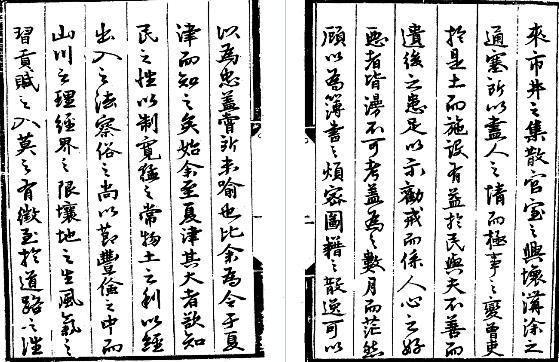 以為忠蓋嘗所未喻也比余為令于夏
津而知之矣始余至夏津其大者欲知
民之性以制寬猛之常物土之利以經
出入之法察俗之尚以節豐儉之中而
山川之理經界之限壤地之生風氣之
習貢賦之入莫之有徵至於道路之往
來市井之集散官室之興壞溝涂之
通塞所以盡人之情而極事之變曾吏
於是土而施設有益於民與夫不善而
遺後之患足以示勸戒而係人心之好
惡者皆漫不可考蓋為之數月而茫然
顧以為簿書之煩圖籍之散逸可以